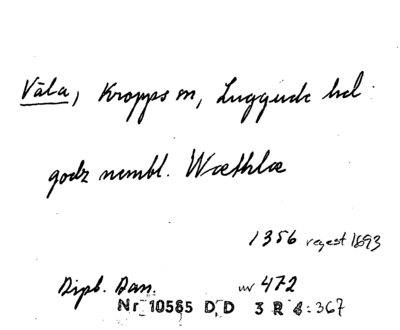 Våla, Kropps sn, Luggude hd.
godz nembl. Wæthlæ
1356 regest 1693
Dipl. Dan. nr 472
Nr 10585 D.D 3 R 4:367